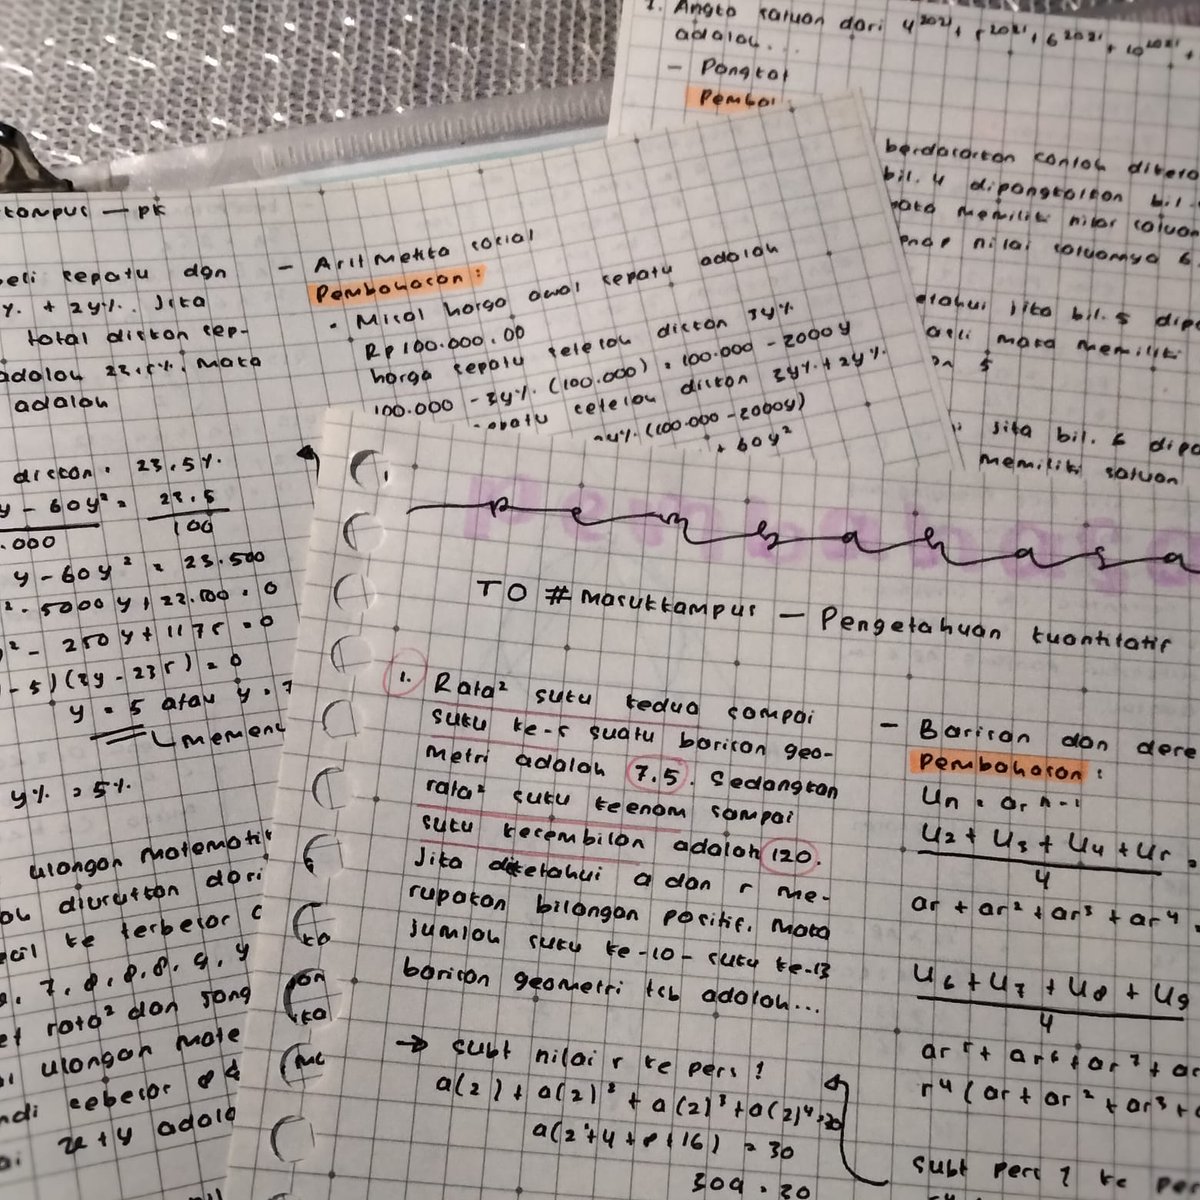 1. Angka satuan dari 4²⁰²¹ + 5²⁰²¹ + 6²⁰²¹ + 10²⁰²¹ +
adalah...
- Pangkat
Pembai
berdasarkan contoh diketa
bil. 4 dipangkatkan bil.
maka memiliki nilai satuan
genap nilai satuannya 6.
etahui jika bil. 5 dipa
asli maka memiliki
an 5
jika bil. 6 dipa
memiliki satuan
kampus — PK
beli sepatu dgn
y% + 2y%. Jika
total diskon sep-
adalah 23,5%. Maka
adalah
diskon = 23,5%
y - 60y² = 23,5
.000 100
y - 60y² = 23.500
² - 5000y + 23.500 = 0
² - 250y + 1175 = 0
- 5)(3y - 235) = 0
y = 5 atau y = 7
memen
y% = 5%
ulangan matematik
ah diurutkan dari
ecil ke terbesar
7, 8, 8, 8, 9, y
et rata² dan jang
ulangan mate
ndi sebesar 8 &
x + y adala
- Aritmetika sosial
Pembahasan :
• Misal harga awal sepatu adalah
Rp 100.000.00
harga sepatu setelah diskon 3y%
100.000 - 3y% (100.000) = 100.000 - 3000y
epatu setelah diskon 3y% + 2y%
y% (100.000 - 3000y)
+ 60y²
pembahasa
pembahasa
TO #masukkampus — Pengetahuan kuantitatif
1. Rata² suku kedua sampai
suku ke-5 suatu barisan geo-
metri adalah 7,5. Sedangkan
rata² suku keenam sampai
suku kesembilan adalah 120.
Jika diketahui a dan r me-
rupakan bilangan positif. Maka
jumlah suku ke-10 - suku ke-13
barisan geometri tsb adalah...
→ subt nilai r ke pers 1
a(2) + a(2)² + a(2)³ + a(2)⁴ = 30
a(2 + 4 + 8 + 16) = 30
30a = 30
- Barisan dan dere
Pembahasan :
Un = ar n-1
U2 + U3 + U4 + U5 =
4
ar + ar² + ar³ + ar⁴ =
U6 + U7 + U8 + U9
4
ar⁵ + ar⁶ + ar⁷ + ar
r⁴ (ar + ar² + ar³ + a
subt pers 1 ke per